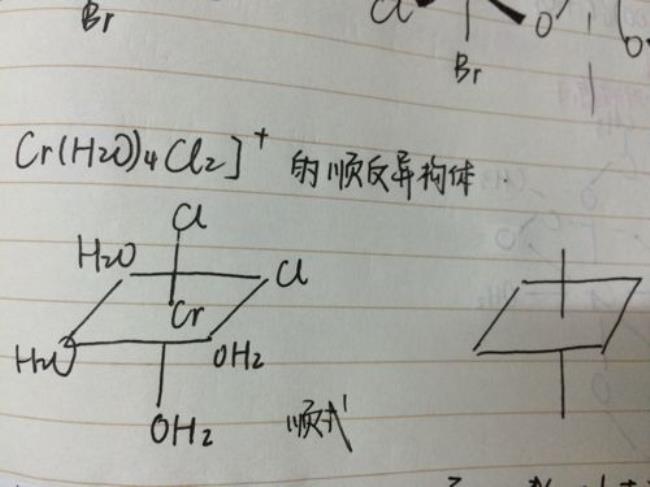 Cl O
Br Br O
Cr(H2O)4Cl2]+ 的顺反异构体
Cl
H2O Cl
Cr
H2O OH2
OH2 顺式